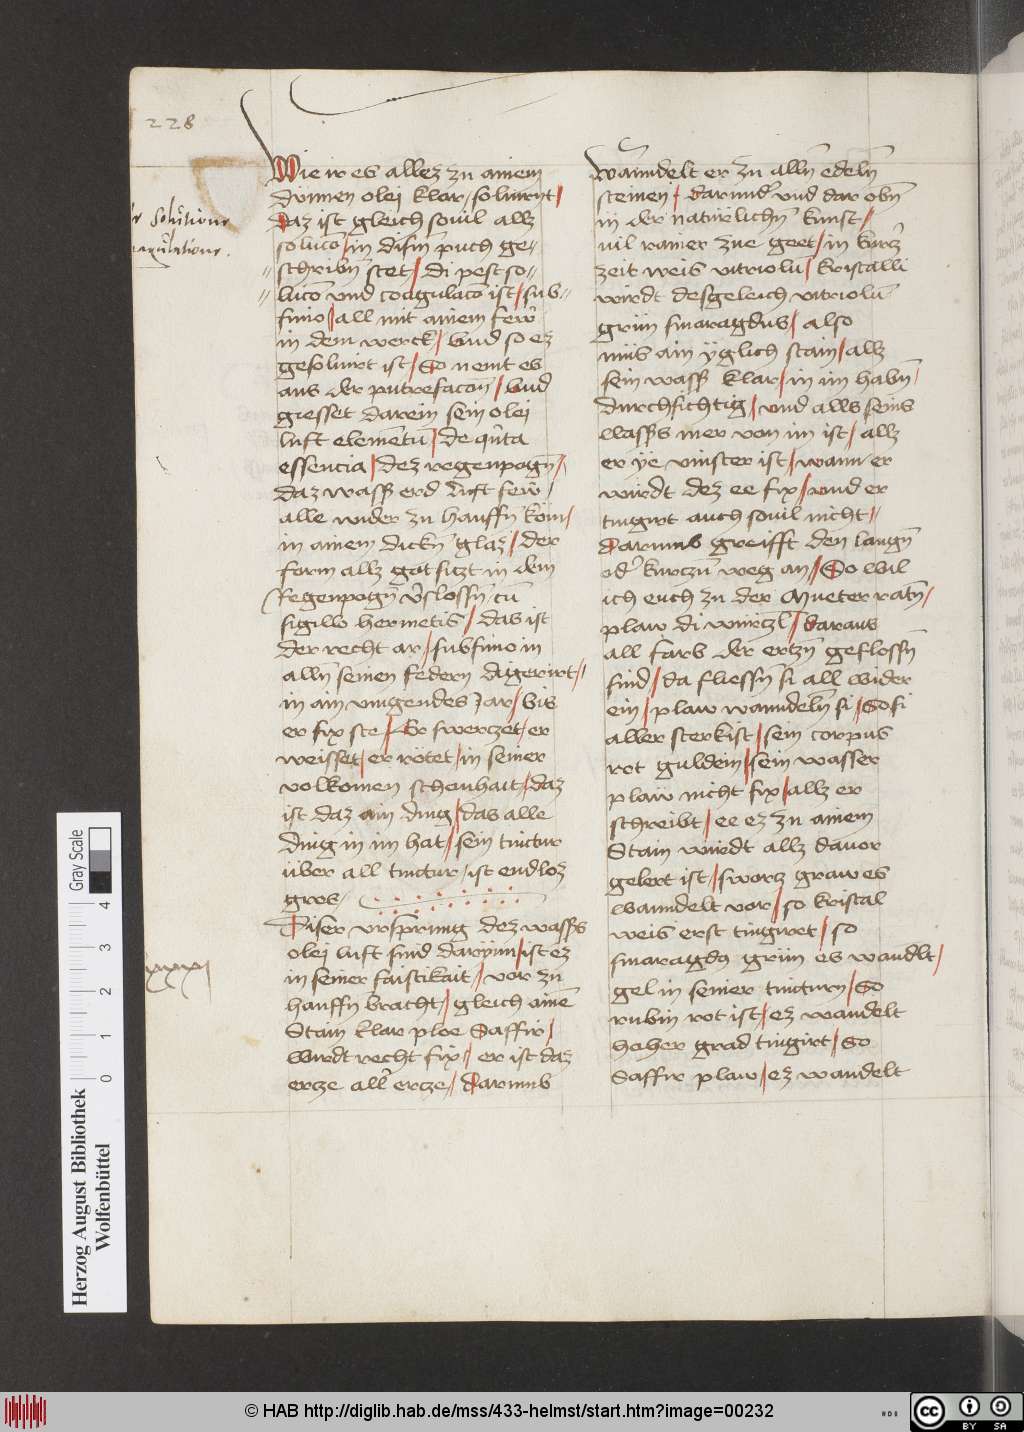 228
Wie ir es allez zu ainem
dünnen olej klar / solvirnt /
daz ist gleich souil allz
solucō / in disin̄ puch ge=
schribn̄ stet / di pest so=
lucō vnd coagulacō ist / sub=
fimo / all mit ainem fewr̄
in dem werck / vnd so ez
gesolvirt ist / So nemt es
aus der putrefaccon̄ / vnd
giesset darein sein olej
luft elemētū / de qūta
essencia / dez regenpogn̄ /
daz wass erd luft fewr̄ /
alle wider zu hauffn̄ kom /
in ainem dickn̄ glaz / der
form allz got siczt in dem
Regenpogn̄ v̄slossn̄ / cū
sigillo hermetis / das ist
der recht ar / sub fimo in
alln̄ seinen federn digerirt /
in ain vmgendes Jar / bis
er fix ste / Er swerczet / er
weisset / er rötet / in seiner
volkomen schonhait / daz
ist daz ain ding / das alle
ding in im hat / sein tinctur
über all tinctur / ist endloz
gros /
Diser vrsprung dez wassers
olej luft sind daryn̄n / ist ez
in seiner faistikait / vor zu
hauffn̄ bracht / gleich ainē
Stain klar ploe Saffir /
Wirdt recht fix / er ist daz
ercze all' ercze / darumb
wanndelt er zu alln̄ edeln̄
steinen / darund' vnd dar obn̄
in der natürlichn̄ kunst /
vil rainer zue geet / in kurcz
zeit weis vitriolū / kristalli
wirdt desgeleich vitriolū
grün smaragdus / also
müs ain yglich stain / allz
sein wass klar / in im habn̄
durchsichtig / vnd alls seins
Wassers mer von im ist / allz
er ye vinster ist / wann er
wirdt dez ee fix / vnd er
tingirt auch souil nicht /
Darumb greifft den langn̄
od' kurczn̄ weg an / So wil
ich euch zu der Mueter ratn̄ /
plaw di wurczl / daraus
all farb der erczn̄ geflossn̄
sind / da fliessn̄ si all wider
ein / plaw wanndeln̄ si / So si
aller sterkist / sein corpus
rot guldein / sein wasser
plaw nicht fix / allz er
schreibt / ee ez zu ainem
Stain wirdt allz dauor
gelert ist / sworcz graw es
Wanndelt vor / so kristal
weis erst tingirt / so
smaragdꝰ grün es wandlt /
gel in seiner tincturn / So
rubin rot ist / ez wandelt
hoher grad tingirt / so
Saffir plaw / ez wandelt
xxxxj
Herzog August Bibliothek
Wolfenbüttel
Gray Scale
0 1 2 3 4
© HAB http://diglib.hab.de/mss/433-helmst/start.htm?image=00232
cc BY SA